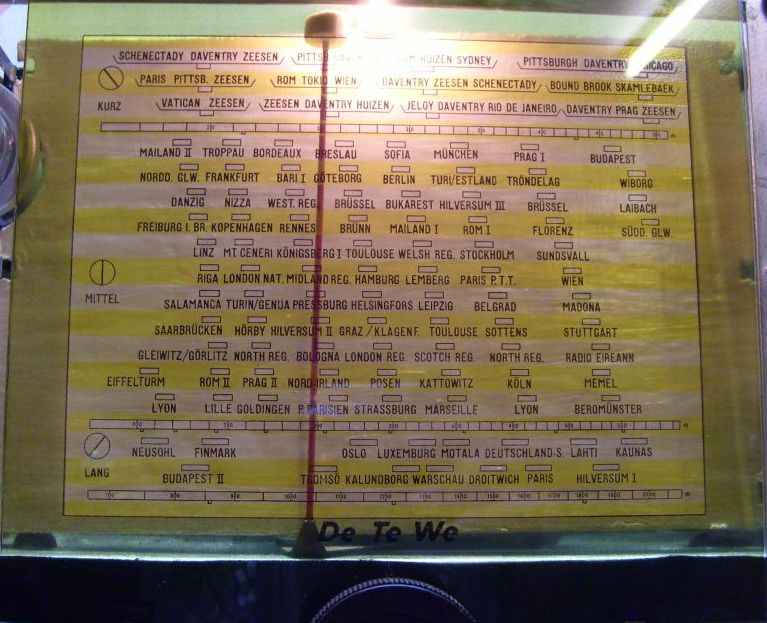 SCHENECTADY DAVENTRY ZEESEN HUIZEN SYDNEY PITTSBURGH DAVENTRY CHICAGO
PARIS PITTSB. ZEESEN ROM TOKIO WIEN DAVENTRY ZEESEN SCHENECTADY BOUND BROOK SKAMLEBAEK
KURZ VATICAN ZEESEN ZEESEN DAVENTRY HUIZEN JELOY DAVENTRY RIO DE JANEIRO DAVENTRY PRAG ZEESEN
MAILAND II TROPPAU BORDEAUX BRESLAU SOFIA MÜNCHEN PRAG I BUDAPEST
NORDD. GLW. FRANKFURT BARI I GÖTEBORG BERLIN TURI/ESTLAND TRÖNDELAG WIBORG
DANZIG NIZZA WEST. REG. BRÜSSEL BUKAREST HILVERSUM III BRÜSSEL LAIBACH
FREIBURG I. BR. KOPENHAGEN RENNES BRÜNN MAILAND I ROM I FLORENZ SÜDD. GLW.
LINZ MT CENERI KÖNIGSBERG I TOULOUSE WELSH REG. STOCKHOLM SUNDSVALL
RIGA LONDON NAT. MIDLAND REG. HAMBURG LEMBERG PARIS P.T.T. WIEN
MITTEL
SALAMANCA TURIN/GENUA PRESSBURG HELSINGFORS LEIPZIG BELGRAD MADONA
SAARBRÜCKEN HÖRBY HILVERSUM II GRAZ/KLAGENF. TOULOUSE SOTTENS STUTTGART
GLEIWITZ/GÖRLITZ NORTH REG. BOLOGNA LONDON REG. SCOTCH REG. NORTH REG. RADIO EIREANN
EIFFELTURM ROM II PRAG II NORDIRLAND POSEN KATTOWITZ KÖLN MEMEL
LYON LILLE GOLDINGEN P. PARISIEN STRASSBURG MARSEILLE LYON BEROMÜNSTER
NEUSOHL FINMARK OSLO LUXEMBURG MOTALA DEUTSCHLAND-S. LAHTI KAUNAS
LANG BUDAPEST II TROMSÖ KALUNDBORG WARSCHAU DROITWICH PARIS HILVERSUM I
De Te We